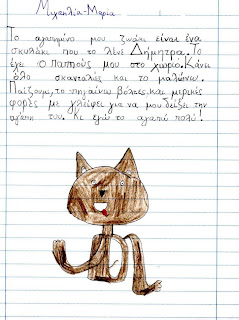 Μιχαηλία-Μαρία
Το αγαπημένο μου ζωάκι είναι ένα
σκυλάκι που το λένε Δήμητρα. Το
έχει ο παππούς μου στο χωριό. Κάνει
όλο σκανταλιές και το μαλώνω.
Παίζουμε, το πηγαίνω βόλτες και μερικές
φορές με γλείφει για να μου δείξει την
αγάπη του. Κι εγώ το αγαπώ πολύ!